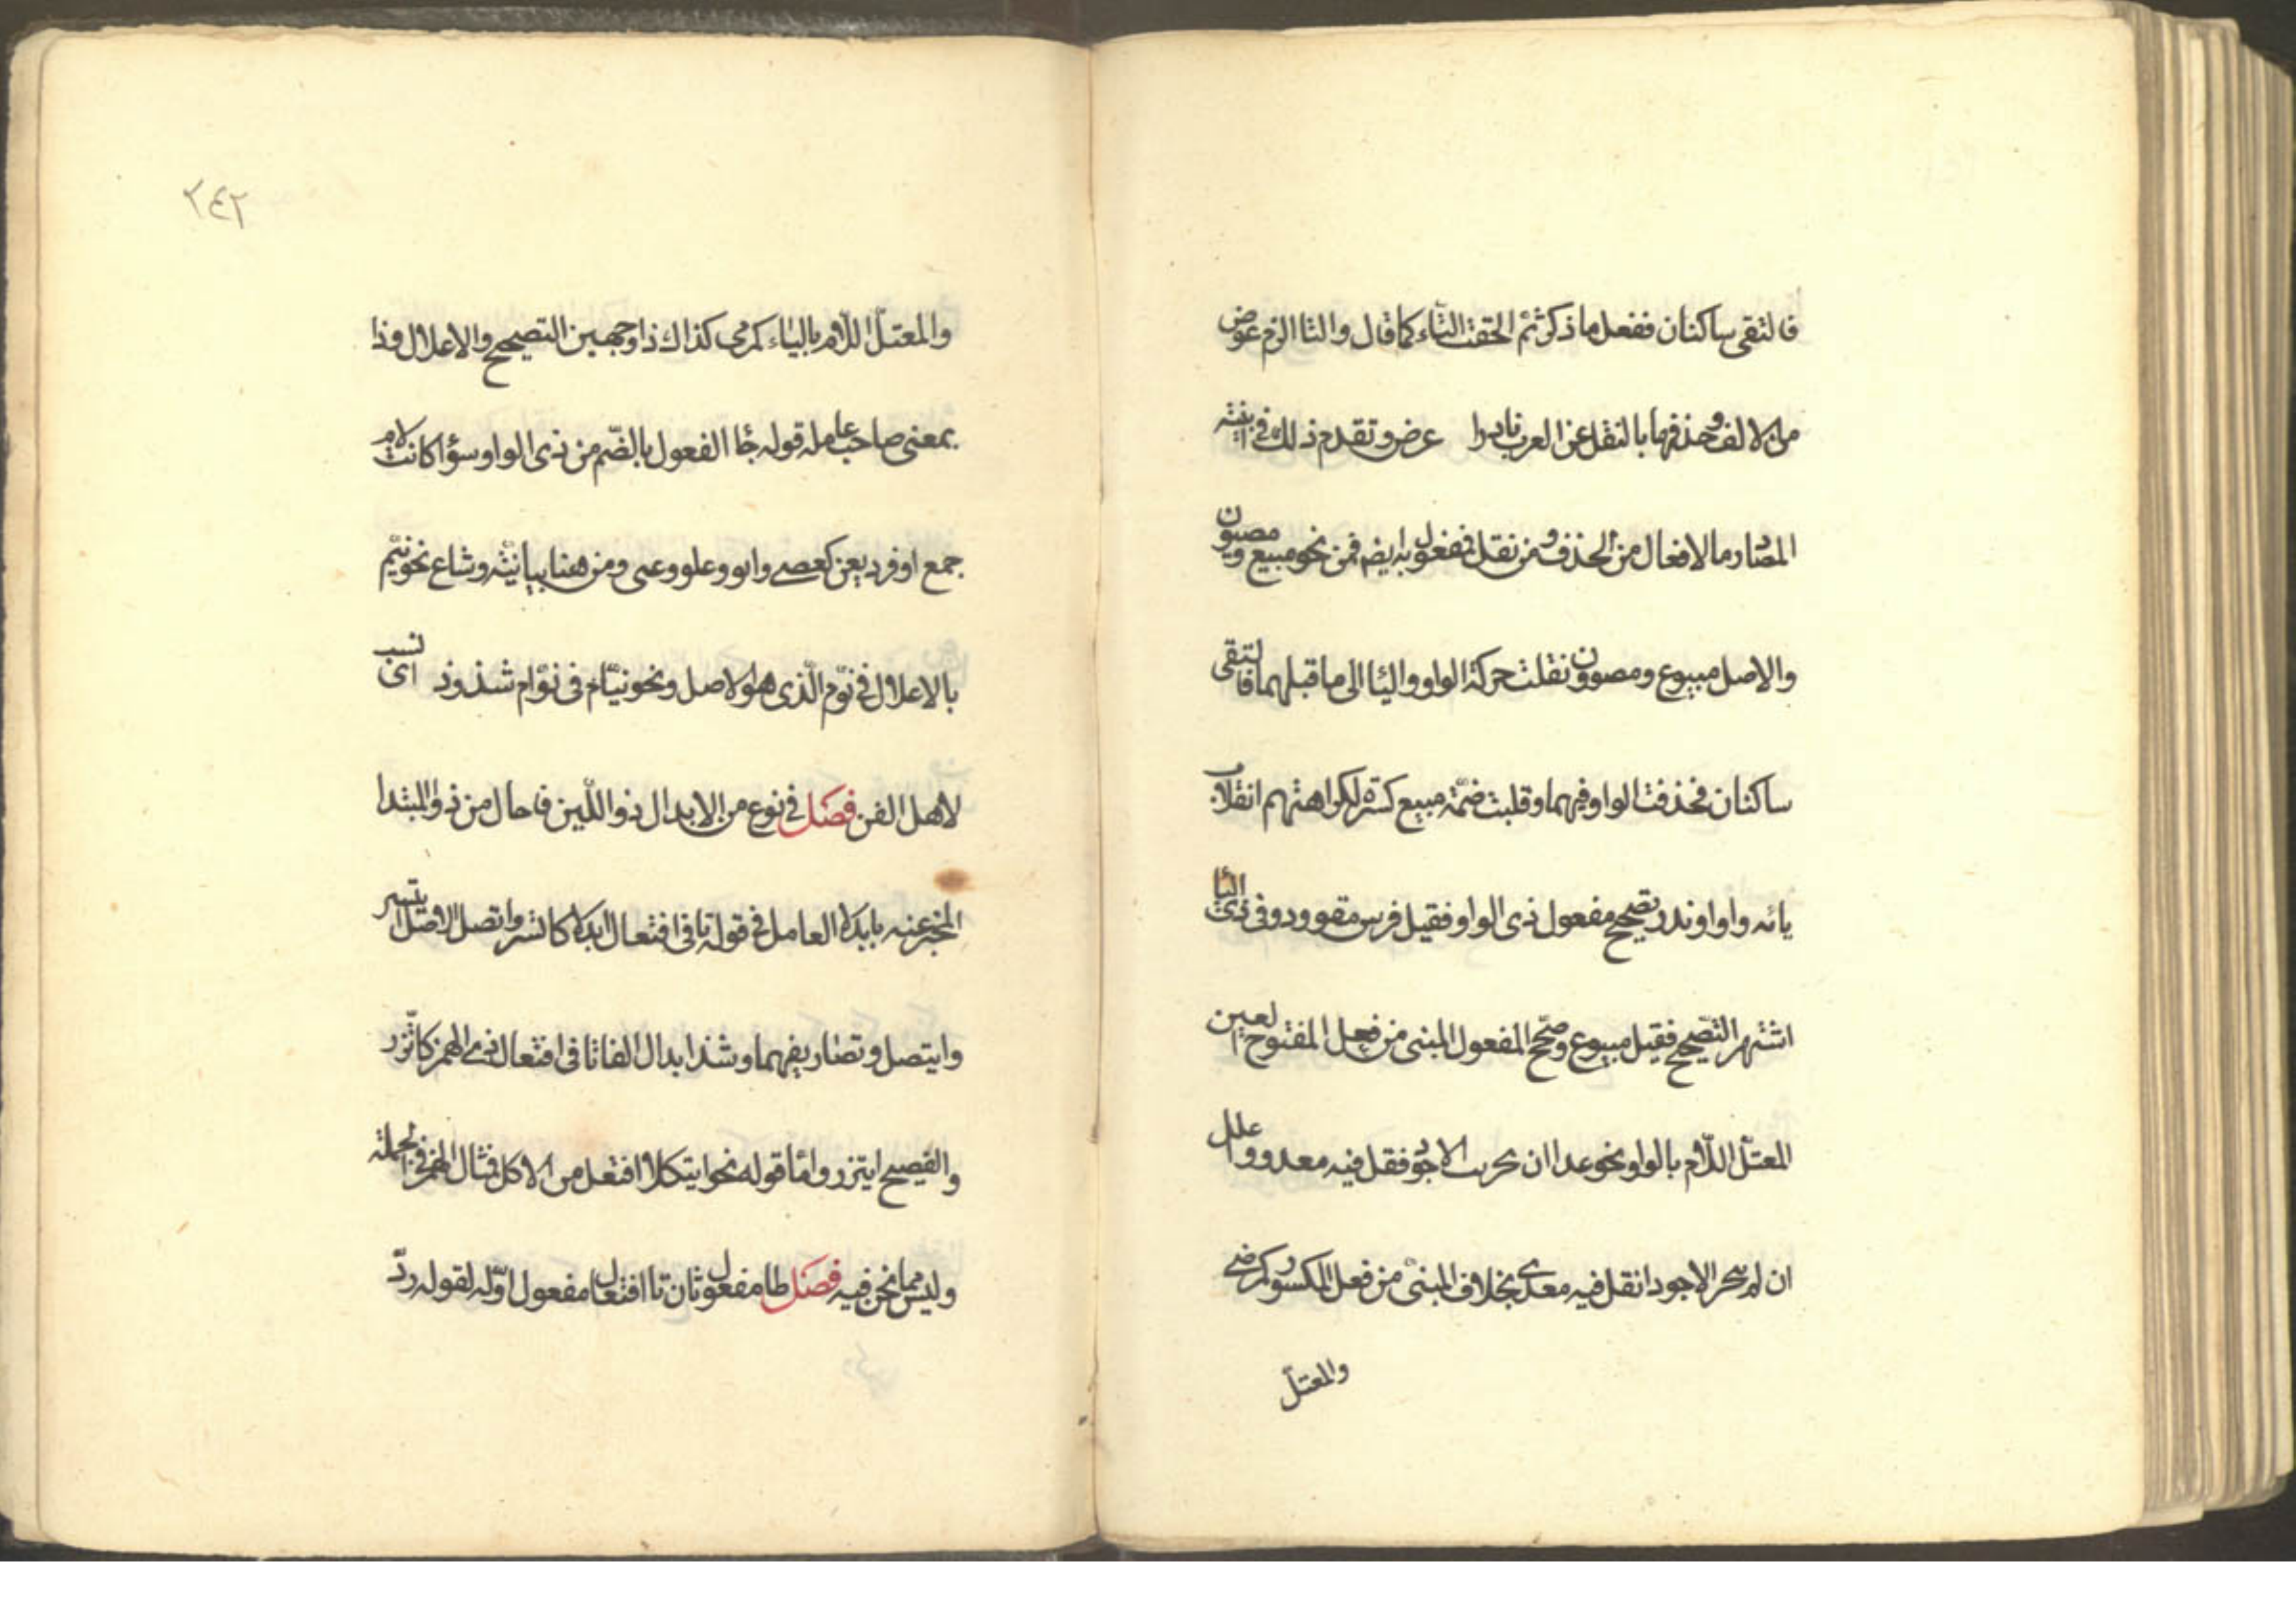 فالتقى ساكنان ففعل ما ذكر ثم الحقت التاء كما قال والتا الزم عوض
من الالف وحذفها بالنقل عن العرب نادرا عرض وتقدم ذلك في ابنية
المصادر ما لافعال من الحذف ومن نقل فمفعول به ايض قمن نحو مبيع ومصون
والاصل مبيوع ومصوون نقلت حركة الواو واليا الى ما قبلهما فالتقى
ساكنان فحذفت الواو فيهما وقلبت ضمة مبيع كسرة لكراهتهم انقلاب
يائه واوا وندر تصحيح مفعول ذي الواو فقيل فرس مقوود وفي ذي اليا
اشتهر التصحيح فقيل مبيوع وصحح المفعول المبنى من فعل المفتوح العين
المعتل اللام بالواو نحو عدا ان تحريت الاجود فقل فيه معدو واعلل
ان لم تتحر الاجودا فقل فيه معدى بخلاف المبنى من فعل المكسور كرضى
والمعتل
٢٤٢
والمعتل اللام بالياء كرمى كذاك ذا وجهين التصحيح والاعلال وذا
بمعنى صاحب عامله قوله جا الفعول بالضم من ذى الواو سؤا كانت لام
جمع او فرد يعن كعصى وابو وعلو وعتى ومن هنا بيانية وشاع نحو نيم
بالاعلال في نوم الذى هو الاصل ونحو نيام فى نوام شذوذه اى نسب
لاهل الفن فصل في نوع من الابدال ذو اللين فا حال من ذو المبتدا
المخبر عنه بابدلا العامل في قوله تا فى افتعال ابدلا كاتسر واتصل الاصل ايتسر
وايتصل وتصاريفهما وشذ ابدال الفا تا فى افتعال ذى الهمز كاتزر
والفصيح ايتزر واما قوله نحو ايتكلا افتعل من الاكل فمثال الهمز في الجملة
وليس مما نحن فيه فصل طا مفعول ثان تا افتعال مفعول اوله لقوله رد